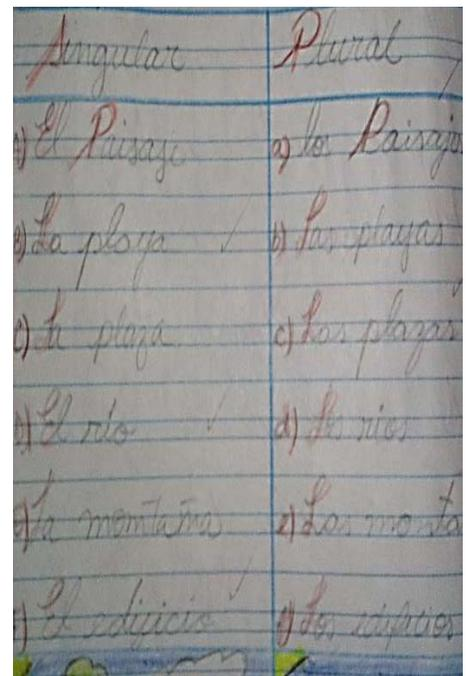 Singular Plural
A) El Paisaje a) los Paisajes
B) La playa b) Las playas
C) La plaza c) Las plazas
D) El río d) Los rios
e) La momtaña e) Las monta
F) El edificio f) Los edificios